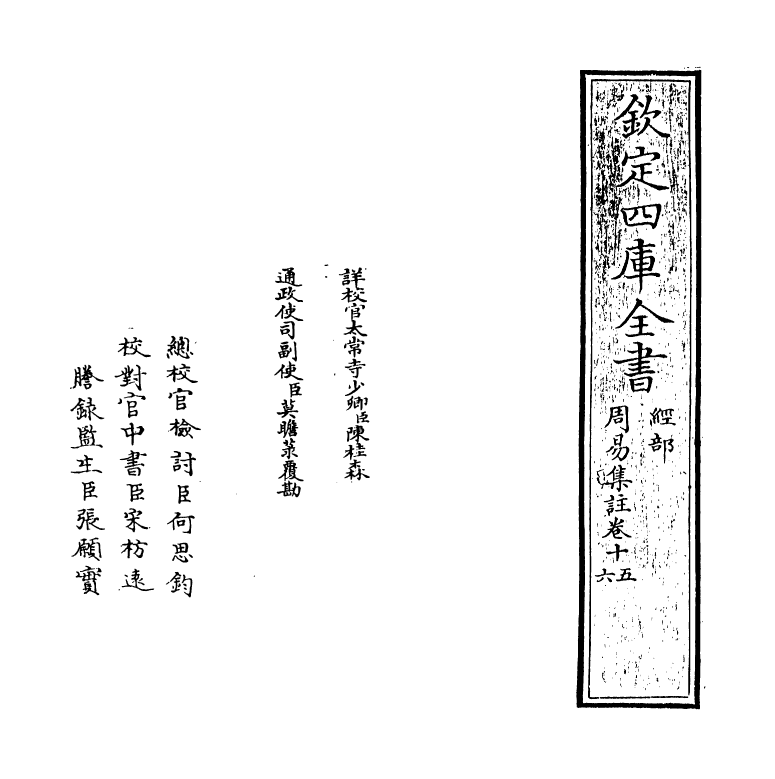 欽定四庫全書
經部
周易集註卷十五
六
詳校官太常寺少卿臣陳桂森
通政使司副使臣莫瞻菉覆勘
總校官檢討臣何思鈞
校對官中書臣宋枋遠
謄録監生臣張願實